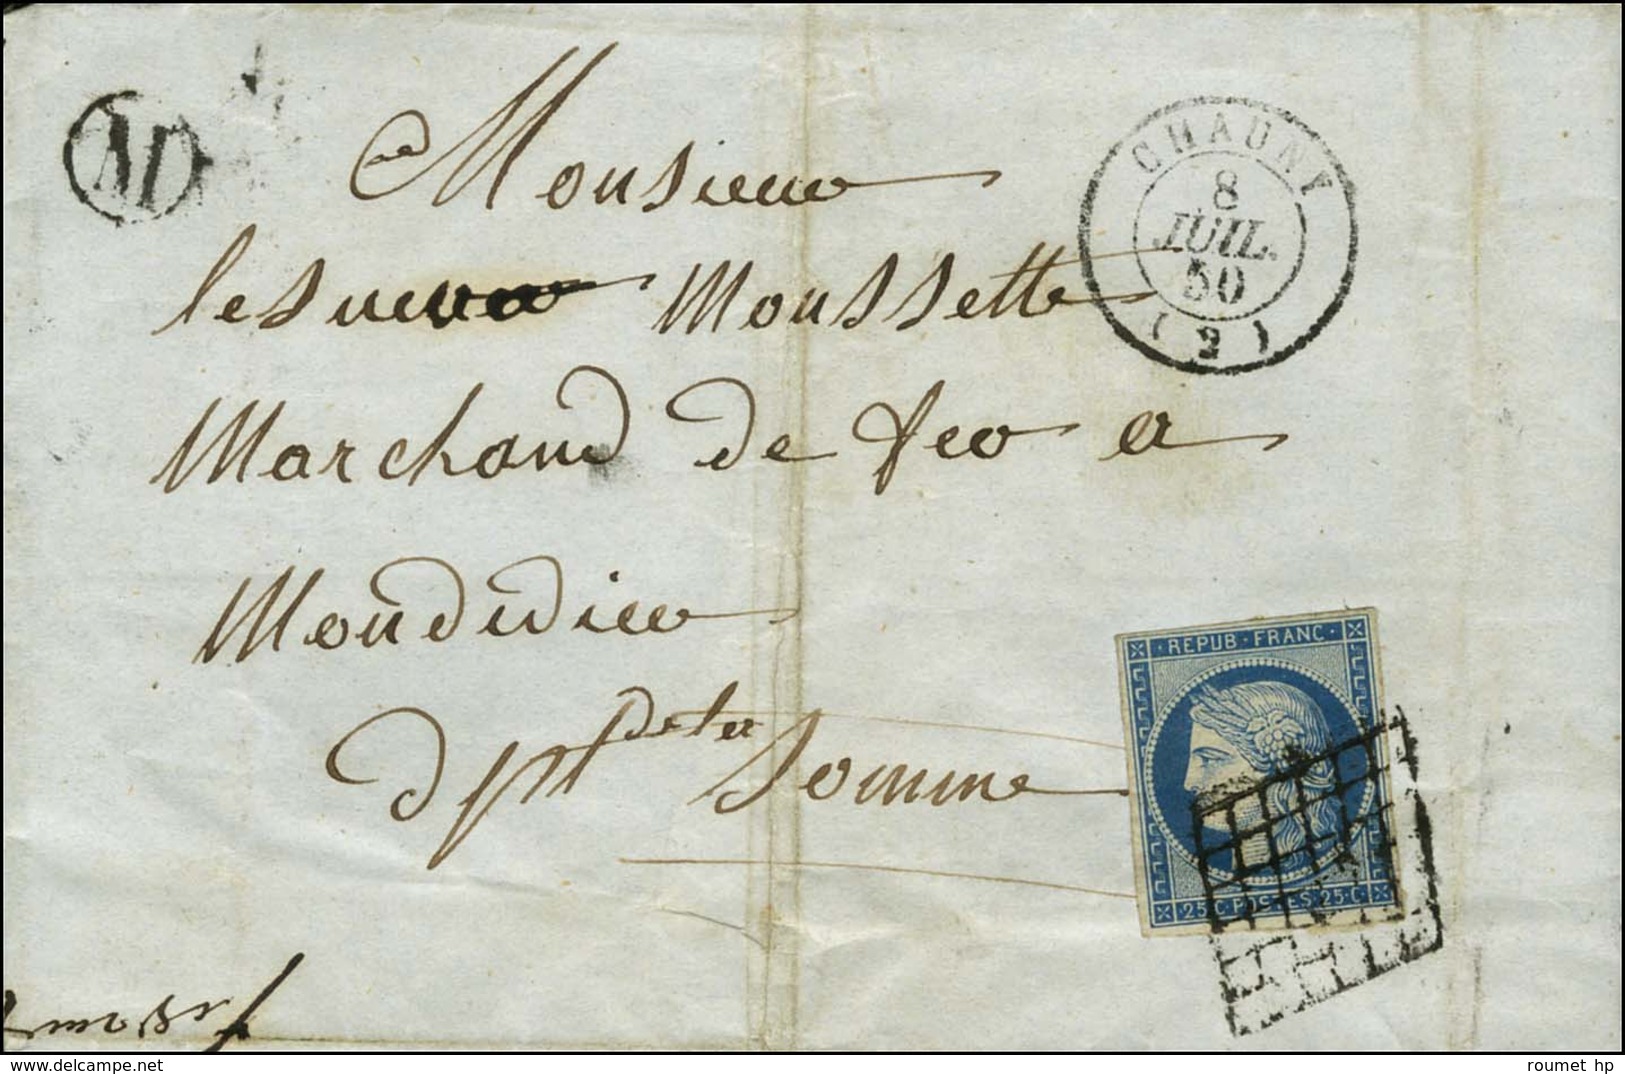 M
CHAUNY
8
JUIL.
50
(2)
Monsieur
lesueur Moussette
Marchand de fer a
Mondidier
dpt de la Somme
REPUB·FRANC·
25·C·POSTES·25·C·
www.delcampe.net
roumet hp